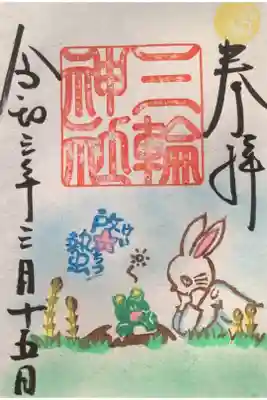 奉拝
三輪
神社
啓蟄
けいちつ
令和三年三月十五日